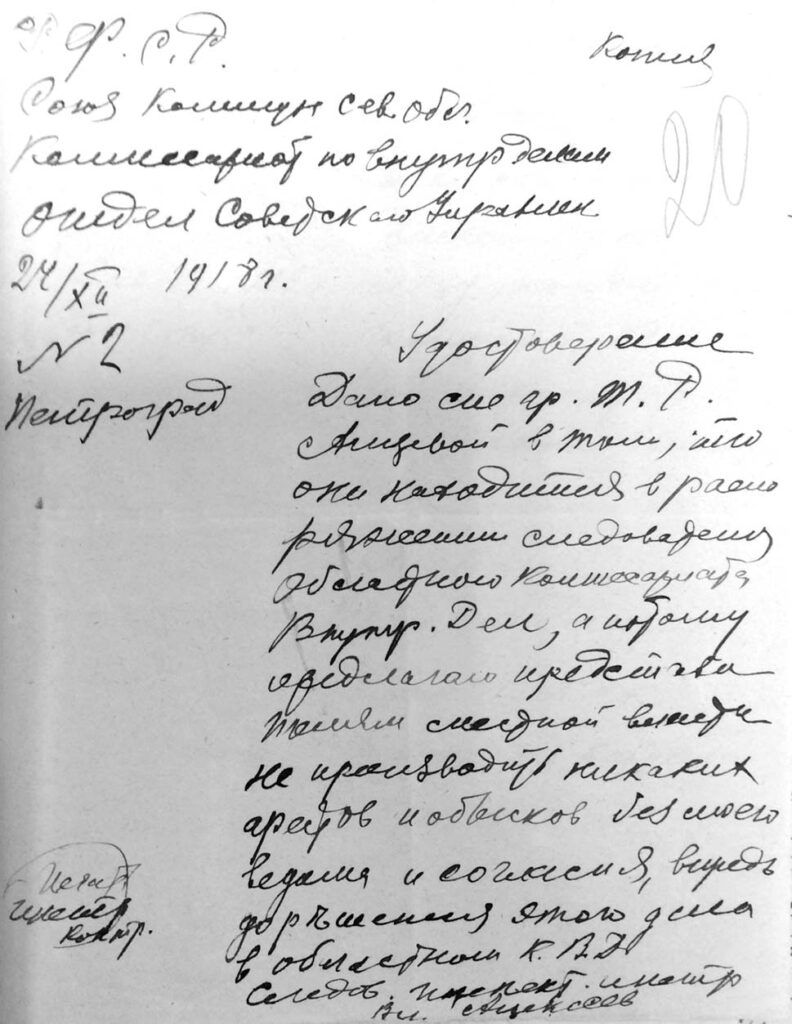 Р. Ф. С. Р.
Копия
20
Союз Коммун Сев. Обл.
Комиссариат по внутр делам
отдел Советского Управлен
24/XII 1918 г.
№ 2
Петроград
Удостоверение
Дано сие гр. М. Р.
в том, что
они находится в распо
ряжении следователя
Областного Комиссариата
Внутр. Дел, а потому
предлагаю представи
телям местной власти
не производить никаких
арестов и обысков без моего
ведома и согласия, впредь
до рѣшения этого дела
в областном К. В. Д
Следов. инстр
Вл. Алексеев
Печать
контр.